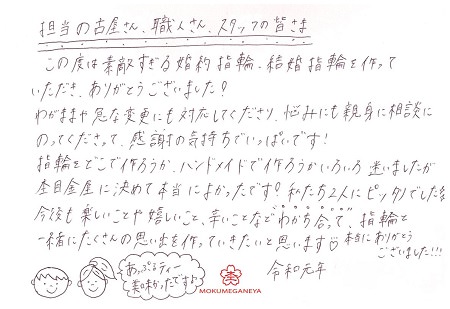 担当の古屋さん、職人さん、スタッフの皆さま
この度は素敵すぎる婚約指輪、結婚指輪を作って
いただき、ありがとうございました!
わがままや急な変更にも対応してくださり、悩みにも親身に相談に
のってくださって、感謝の気持ちでいっぱいです!
指輪をどこで作ろうか、ハンドメイドで作ろうかいろいろ迷いましたが
杢目金屋に決めて本当によかったです! 私たち2人にピッタリでした
今後も楽しいことや嬉しいこと、辛いことなどわかち合って、指輪と
一緒にたくさんの思い出を作っていきたいと思います
本当にありがとう
ございました!!!
令和元年
あっぷるティー
美味かったですよ
MOKUMEGANEYA